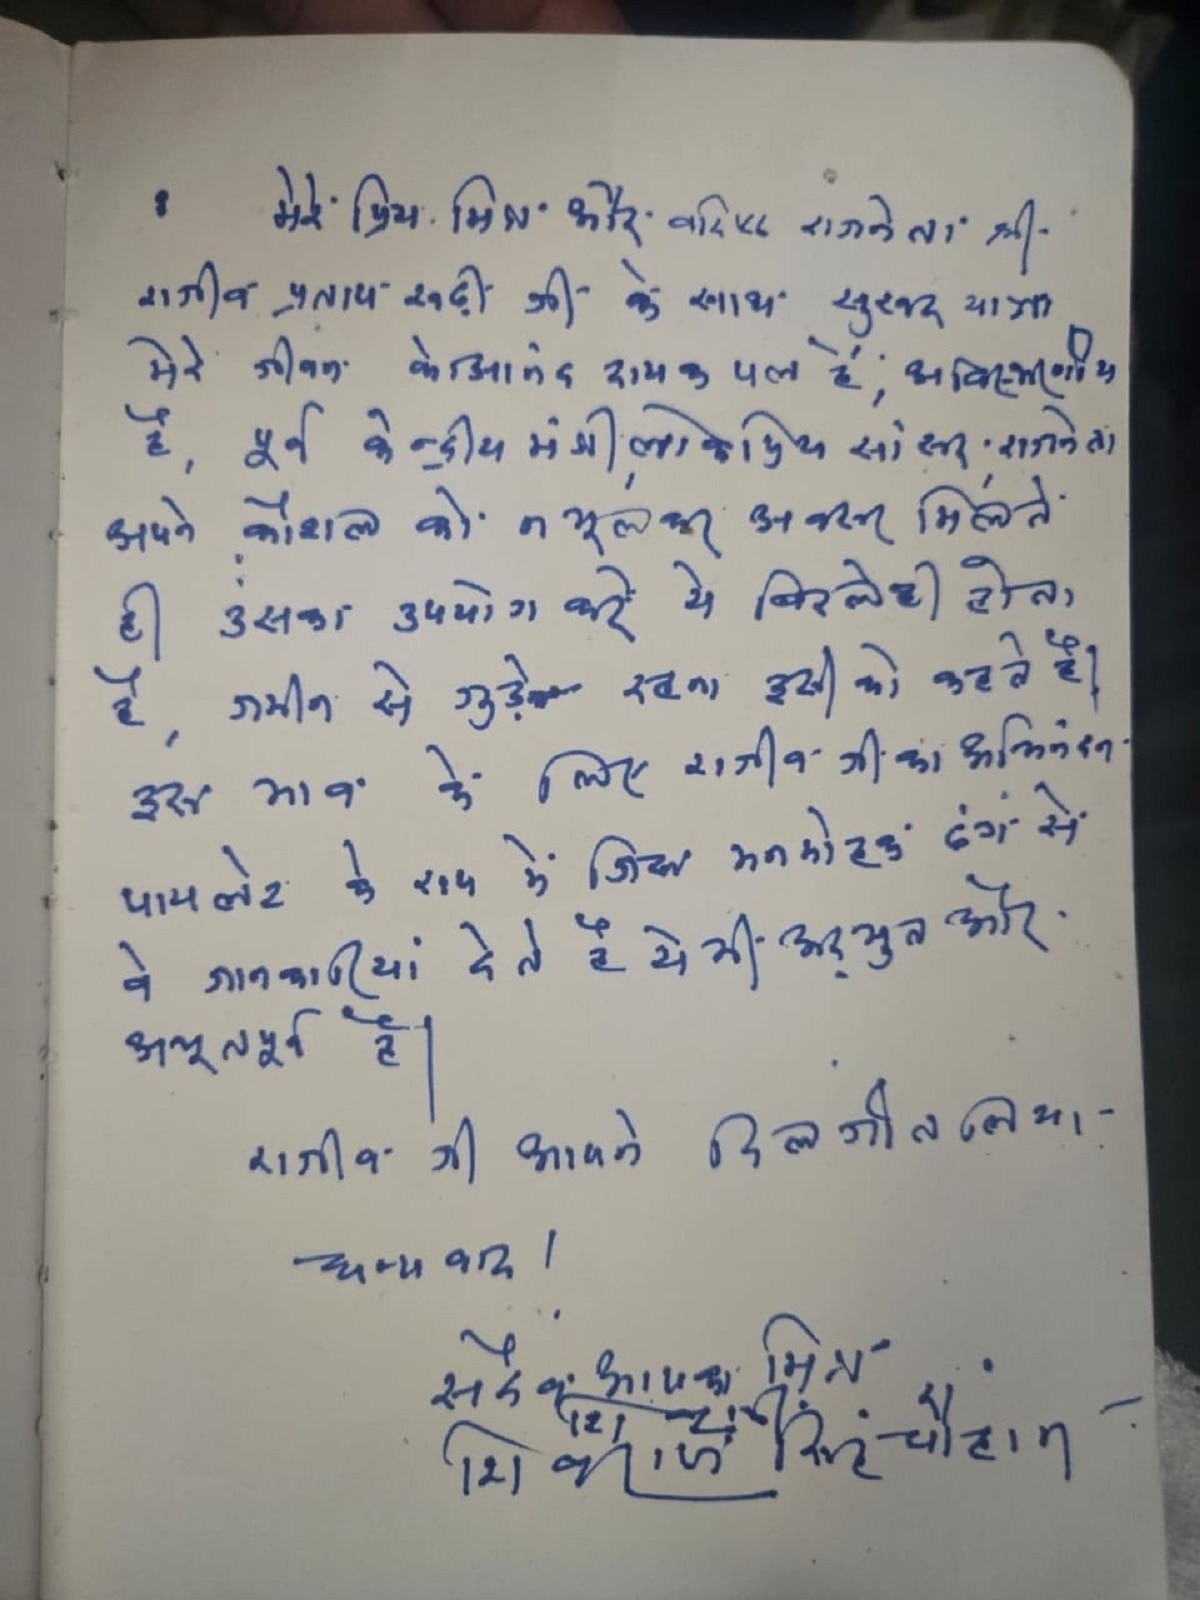 मेरे प्रिय मित्र और वरिष्ठ राजनेता श्री
राजीव प्रताप रूढ़ी जी के साथ सुखद यात्रा
मेरे जीवन के आनंद दायक पल हैं, अविस्मरणीय
है, पूर्व केन्द्रीय मंत्री, लोकप्रिय सांसद, राजनेता
अपने कौशल को न भूलकर अवसर मिलते
ही उसका उपयोग करे ये विरले ही होता
है, जमीन से जुड़े रहना इसी को कहते है।
इस भाव के लिए राजीव जी का अभिनंदन
पायलेट के रूप में जिस मनमोहक ढंग से
वे जानकारियां देते है ये भी अद्भुत और
अभूतपूर्व है।
राजीव जी आपने दिल जीत लिया
धन्यवाद।
सदैव आपका मित्र
शिवराज सिंह चौहान